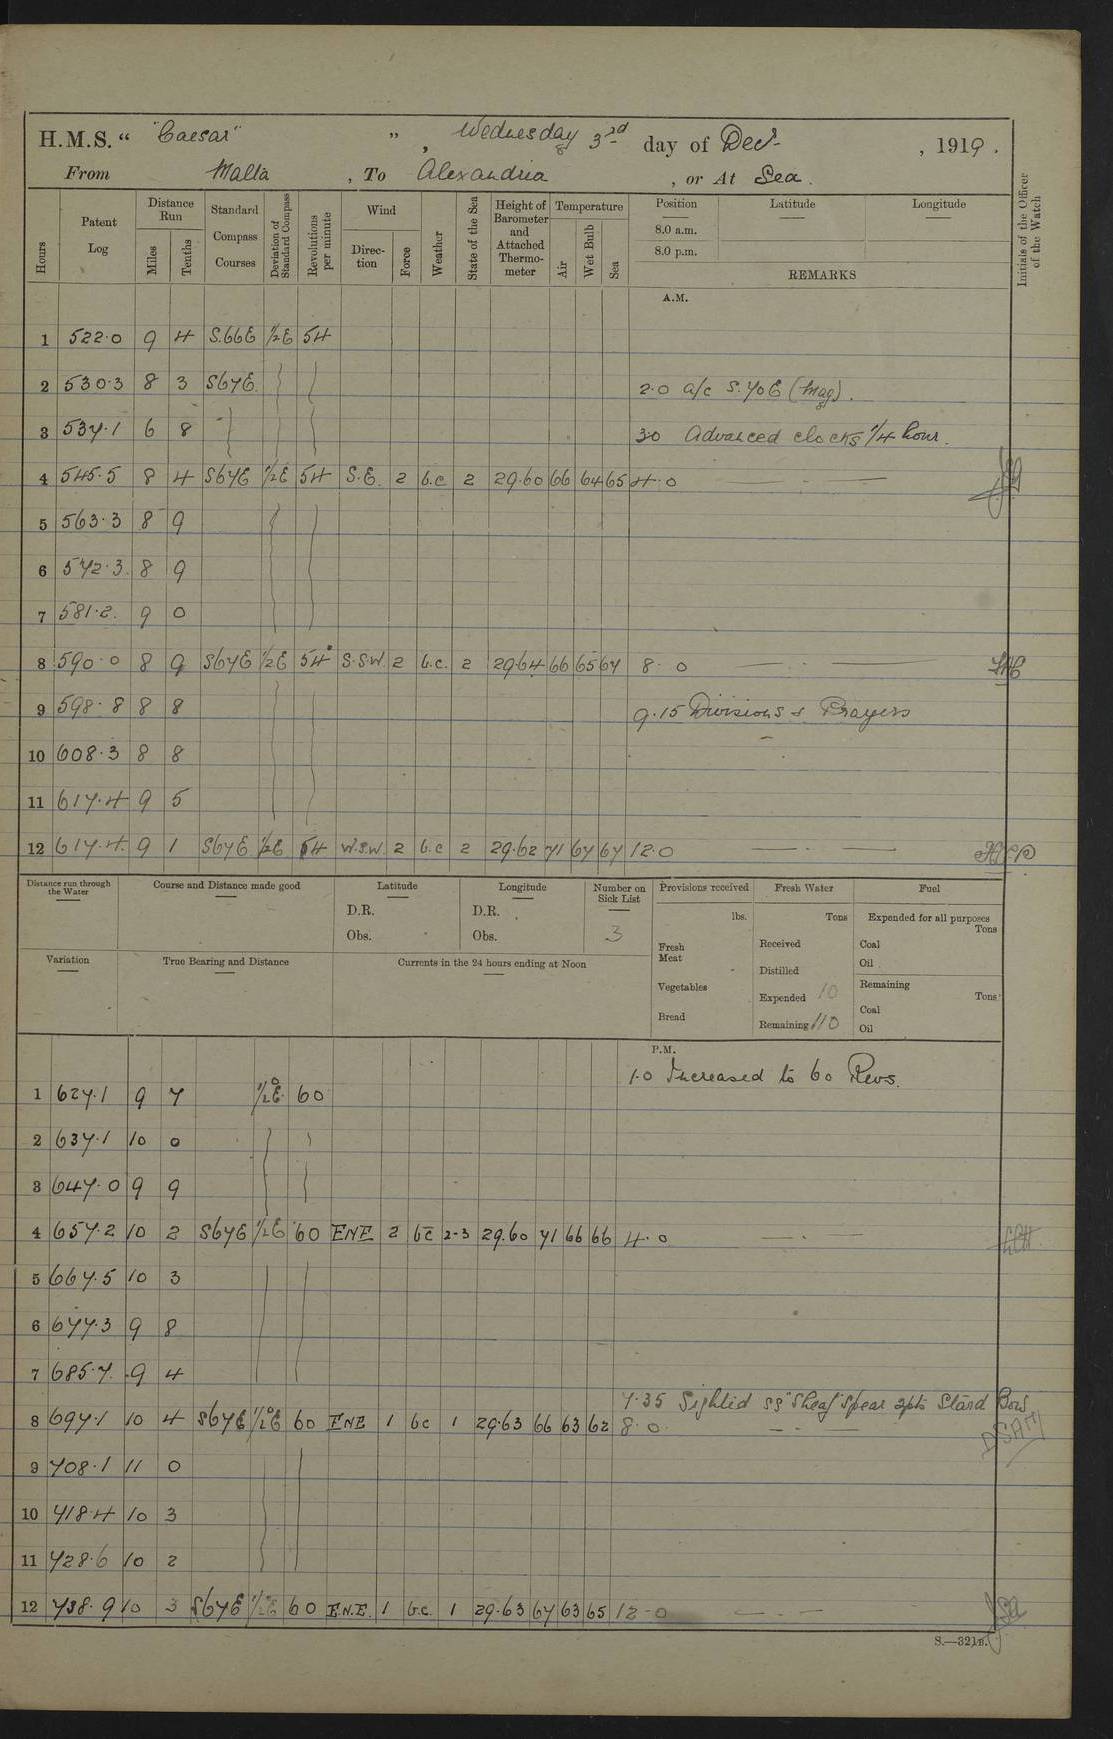 H.M.S. "Caesar", Wednesday 3rd day of Decr, 1919.
From Malta, To Alexandria, or At Sea.
Hours
Patent Log
Distance Run
Miles
Tenths
Standard Compass Courses
Deviation of Standard Compass
Revolutions per minute
Wind
Direction
Force
Weather
State of the Sea
Height of Barometer and Attached Thermometer
Temperature
Air
Wet Bulb
Sea
Position
8.0 a.m.
8.0 p.m.
Latitude
Longitude
REMARKS
Initials of the Officer of the Watch
A.M.
1 522.0 9 4 S.66E ½E 54
2 530.3 8 3 S67E 2.0 a/c S.70E (Mag).
3 537.1 6 8 3.0 Advanced clocks ¼ hour.
4 545.5 8 4 S67E ½E 54 S.E. 2 b.c 2 29.60 66 64 65 4.0
5 563.3 8 9
6 572.3 8 9
7 581.2 9 0
8 590.0 8 9 S67E ½E 54 S.S.W. 2 b.c. 2 29.64 66 65 67 8.0
9 598.8 8 8 9.15 Divisions & Prayers
10 608.3 8 8
11 617.4 9 5
12 617.4 9 1 S67E ½E 54 W.S.W. 2 b.c 2 29.62 71 67 67 12.0
Distance run through the Water
Course and Distance made good
Latitude
D.R.
Obs.
Longitude
D.R.
Obs.
Number on Sick List
3
Provisions received
lbs.
Fresh Meat
Vegetables
Bread
Fresh Water
Tons
Received
Distilled
Expended 10
Remaining 110
Fuel
Expended for all purposes
Tons
Coal
Oil
Remaining
Tons
Coal
Oil
Variation
True Bearing and Distance
Currents in the 24 hours ending at Noon
P.M.
1.0 Increased to 60 Revs.
1 627.1 9 7 ½°E 60
2 637.1 10 0
3 647.0 9 9
4 657.2 10 2 S67E ½E 60 ENE 2 bc 2-3 29.60 71 66 66 4.0
5 667.5 10 3
6 677.3 9 8
7 685.7 9 4
7.35 Sighted SS "Sheaf Spear" 2pts Starḋ Bow
8 697.1 10 4 S67E ½°E 60 ENE 1 bc 1 29.63 66 63 62 8.0
DSAM
9 708.1 11 0
10 718.4 10 3
11 728.6 10 2
12 738.9 10 3 S67E ½°E 60 E.N.E. 1 b.c. 1 29.63 67 63 65 12-0
S.—321B.